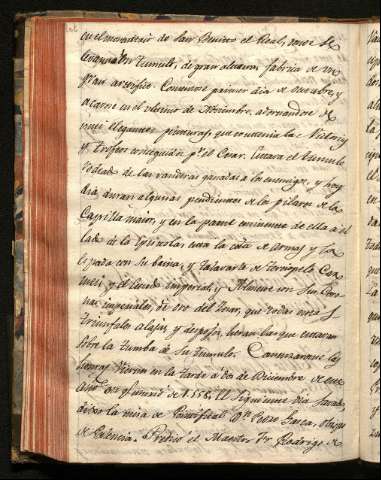 en el monasterio de San Benito el Real, donde se
levantó un tumulo, de gran altura fabrica de
gran artificio. Comenzose primer dia de Octubre, y
acavose en el ultimo de Noviembre, adornandose de
muy elegantes pinturas, que contenia las Victorias
y trofeos conseguidos pr. el Cesar. Estava el tumulo
rodeado de las vanderas ganadas a los enemigos, y hoy
dia duran algunas pendientes de los pilares de la
Capilla maior, y en la pared eminente de ella a el
lado de la Epistola esta la cota de armas, y la
espada con su baina, y talavarte de terciopelo Car
mesi, y el escudo imperial, y Almete con su Coro
na imperiales, de oro del Cesar, que todas estas
triunfales alajas, y despojos, heran las que estavan
sobre la tumba de su tumulo. Comenzaronse las
honras Viernes en la tarde a dos de Diciembre de este
año de 1558. El siguiente dia Savado
dixo la misa de Pontifical Dn. Pedro Gasca, obispo
de Palencia. Predicó el Maestro Fr. Rodrigo de